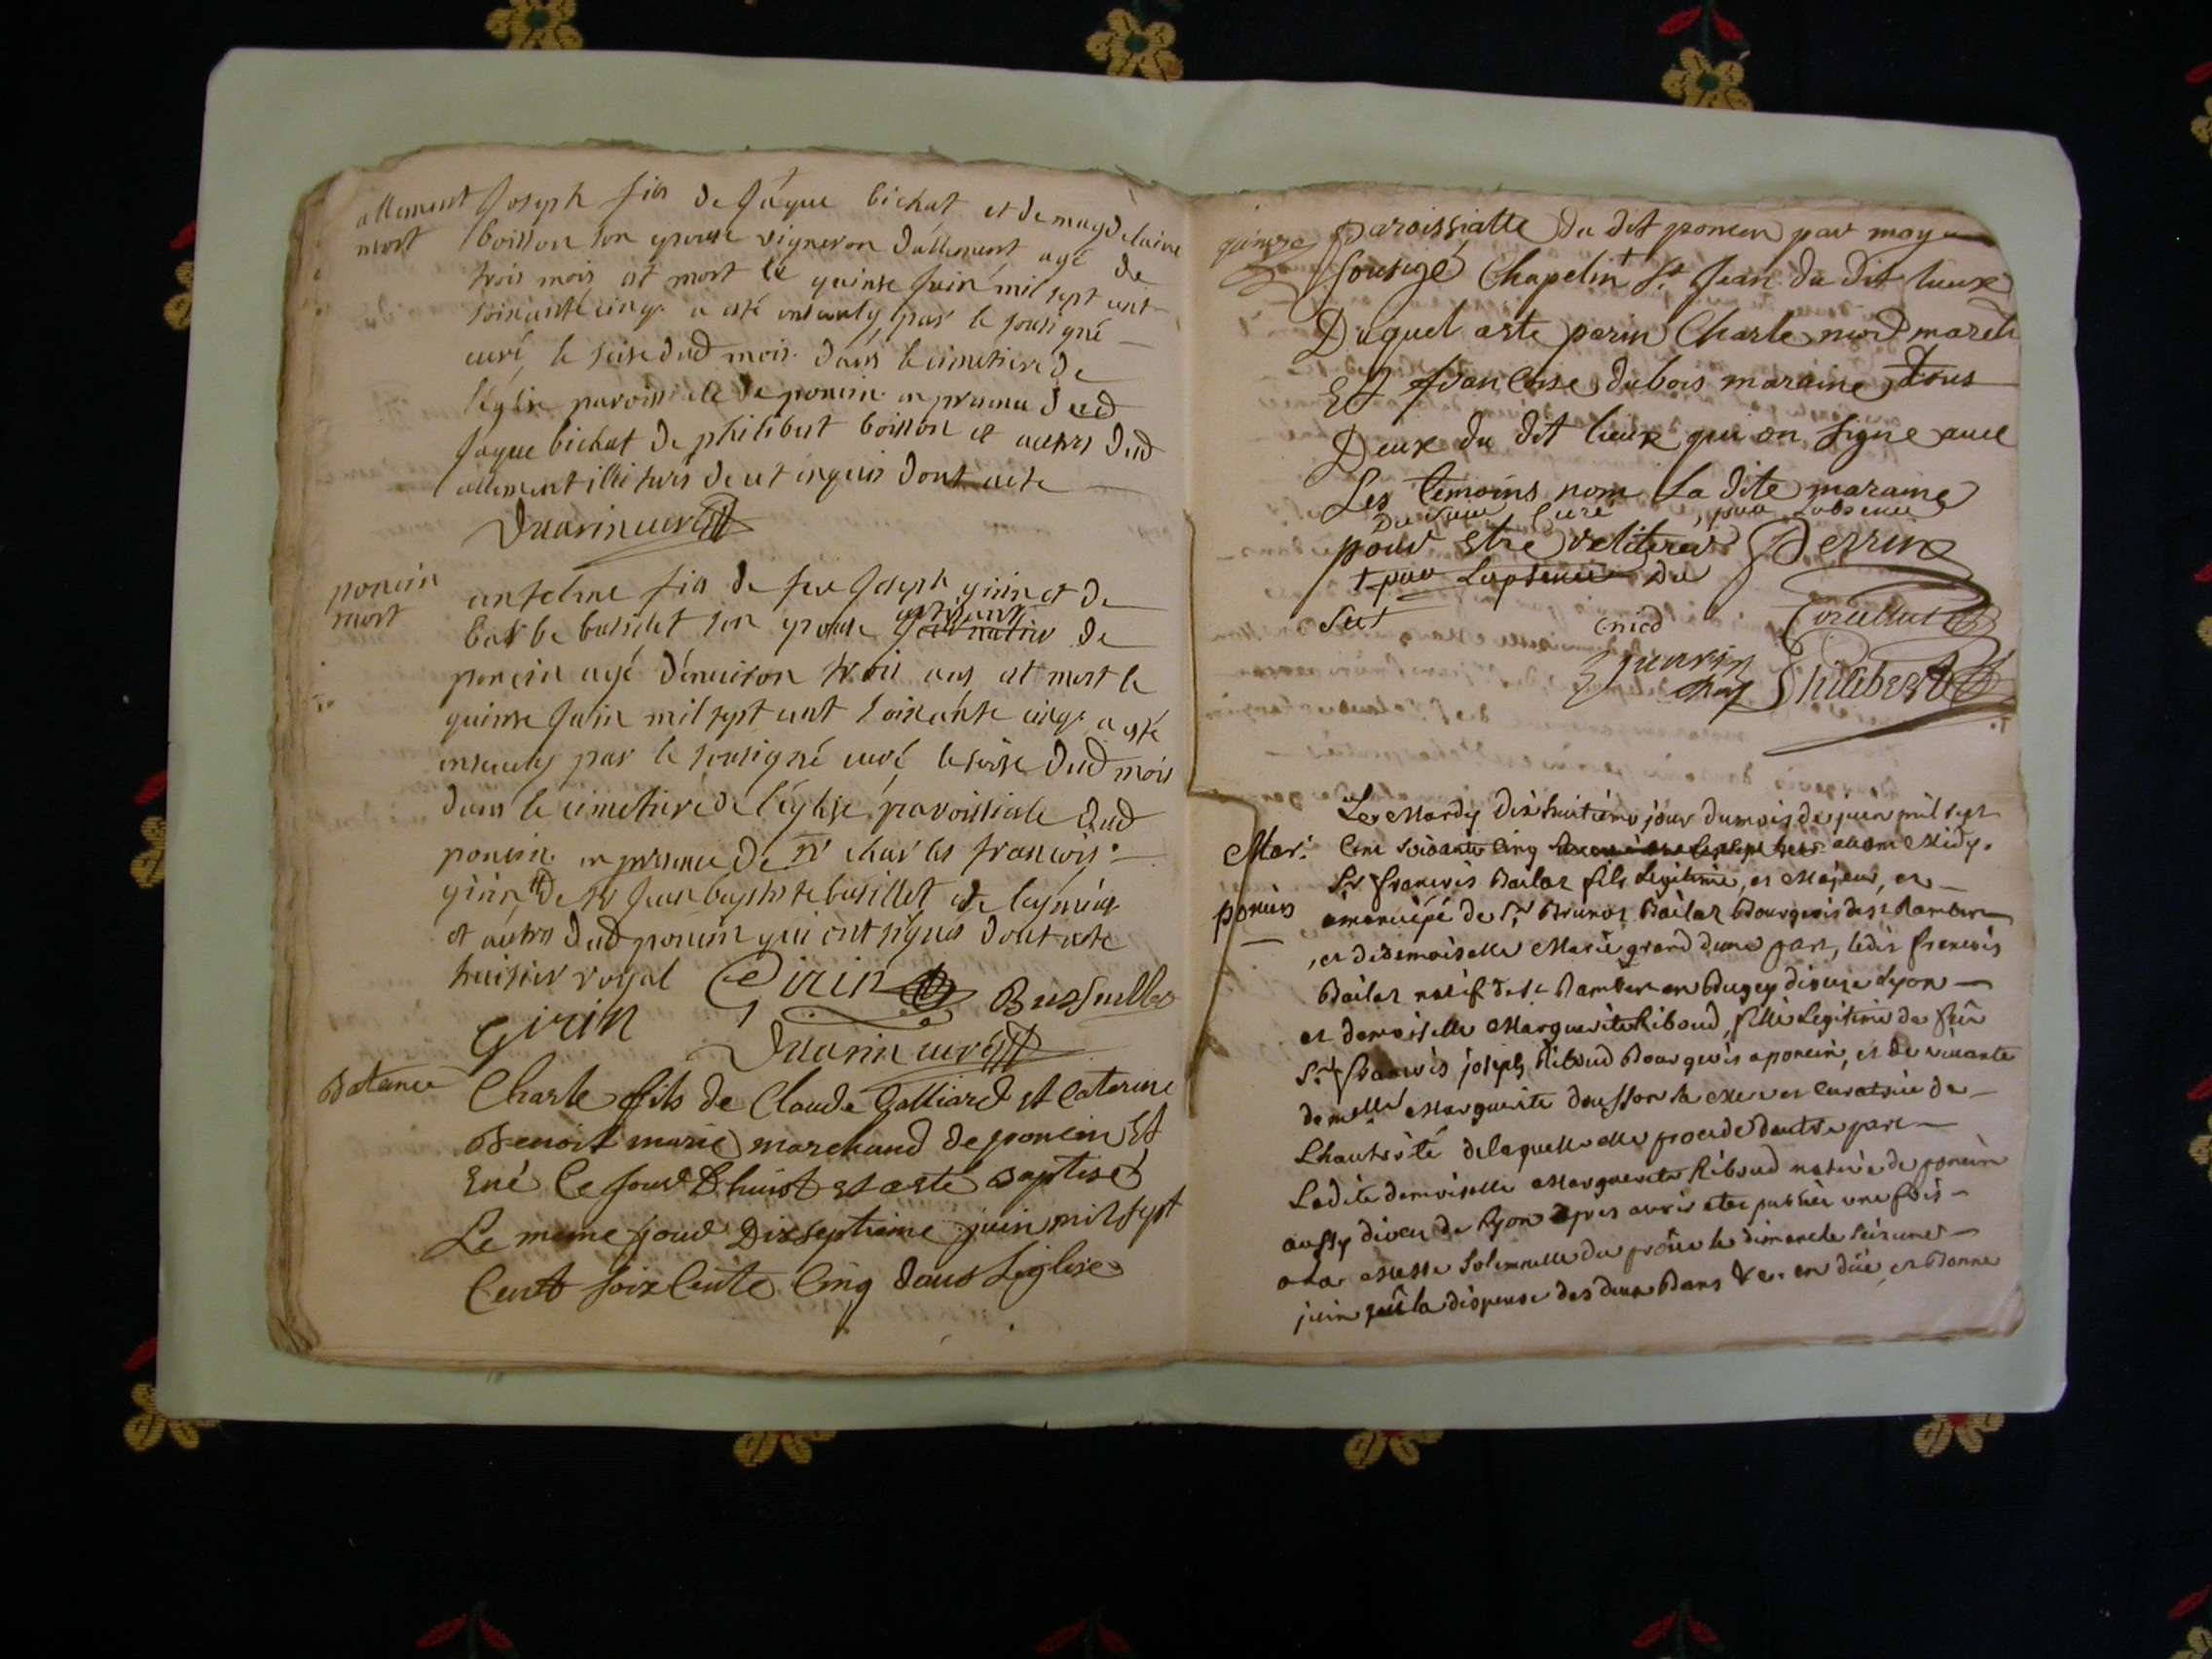 allement Joseph fils de Jaque bichat et de magdelaine
mort boisson son epouse vigneron dallement agé de
trois mois est mort le quinse Juin mil sept cent
soixante cinq a esté enseuely par le sousigné
curé le seise dud mois dans le cimetiere de
léglise paroissiale de poncin en presence dud
Jaque bichat de philibert boisson et autres dud
allement illiteres de ce enquis dont acte
Duarin curé
poncin
mort
antelme fils de feu Joseph girin et de
barbe bussillet son epouse de
poncin agé dénuiron trois ans est mort le
quinse Juin mil sept cent soixante cinq a esté
enseuely par le sousigné curé le seise dud mois
dans le cimetiere de léglise paroissiale dud
poncin en presence de sr charles francois
girin de sr Jean baptiste busillet
et autres dud poncin qui ont signés dont acte
huisier royal Girin Bussuillet
Girin Duarin curé
Bateme Charle fils de Claude Galliard et Caterine
Benoit marié marchand de poncin Et
Ené le jour Dhuiost et aste Baptisé
Le meme jour Dixseptieme juin mil sept
Cent soixcente Cinq dans Leglise
paroissialle du dit poncin par moy
sousigé Chapelin St Jean du dit lieux
Duquel aste parin Charle nied march
Et francoise dubois maraine tous
Deux du dit lieux qui on signe auec
Les temoins nom La dite maraine
pour estre relitere Perrin
du curé par Labsence
par Lapsence du
nied
guerrin
chap Philibert
Mar:
poncin
Le Mardy dix huitieme jour du mois de juin mil sept
Cent soixante Cinq auant Midy.
Sr francois Bailat fils Legitime, et Majeur, et
émancipé de Sr Brunos Bailat Bourgeois de st Rambert
, et de demoiselle Marie grand dune part, ledit francois
Bailat natif de st Rambert en Bugey diocese Lyon
et demoiselle Marguerite Riboud, fille Legitime de feu
Sr francois joseph Riboud Bourgeois a poncin, et de viuante
demlle Marguerite dousson sa mere et Curatrice de
Lhautorité de laquelle elle procede dautre part
Ladite demoiselle Marguerite Riboud natiue de poncin
aussy diocese de Lyon apres auoir etes publiée une fois
a la messe solemnelle du prône le dimanche seizieme
juin la dispense des deux Bans et donne